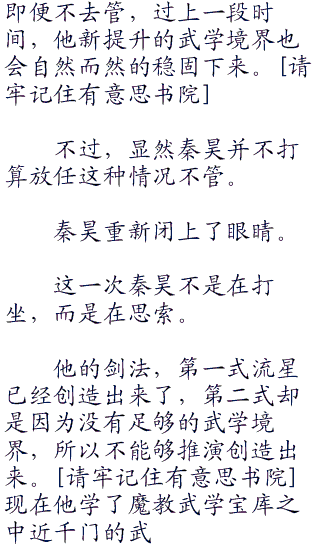 即便不去管，过上一段时
间，他新提升的武学境界也
会自然而然的稳固下来。[请
牢记住有意思书院]
不过，显然秦昊并不打
算放任这种情况不管。
秦昊重新闭上了眼睛。
这一次秦昊不是在打
坐，而是在思索。
他的剑法，第一式流星
已经创造出来了，第二式却
是因为没有足够的武学境
界，所以不能够推演创造出
来。[请牢记住有意思书院]
现在他学了魔教武学宝库之
中近千门的武